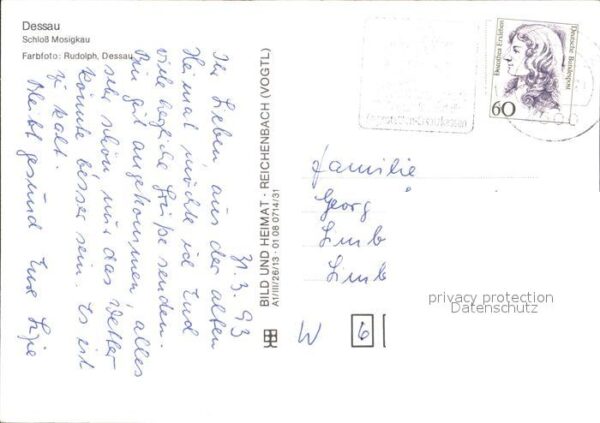 Dessau
Schloß Mosigkau
Farbfoto: Rudolph, Dessau
31.3.93
Ihr Lieben aus der alten
Heimat möchte ich Euch
viele herzliche Grüße senden.
Bin gut angekommen, alles
sehr schön nur das Wetter
könnte besser sein. Es ist
zu kalt.
Bleibt gesund Eure
BILD UND HEIMAT · REICHENBACH (VOGTL)
A1/III/26/13 · 01 08 0714/31
Dorothea Erxleben
Deutsche Bundespost
60
Familie
Georg
W 6
privacy protection
Datenschutz